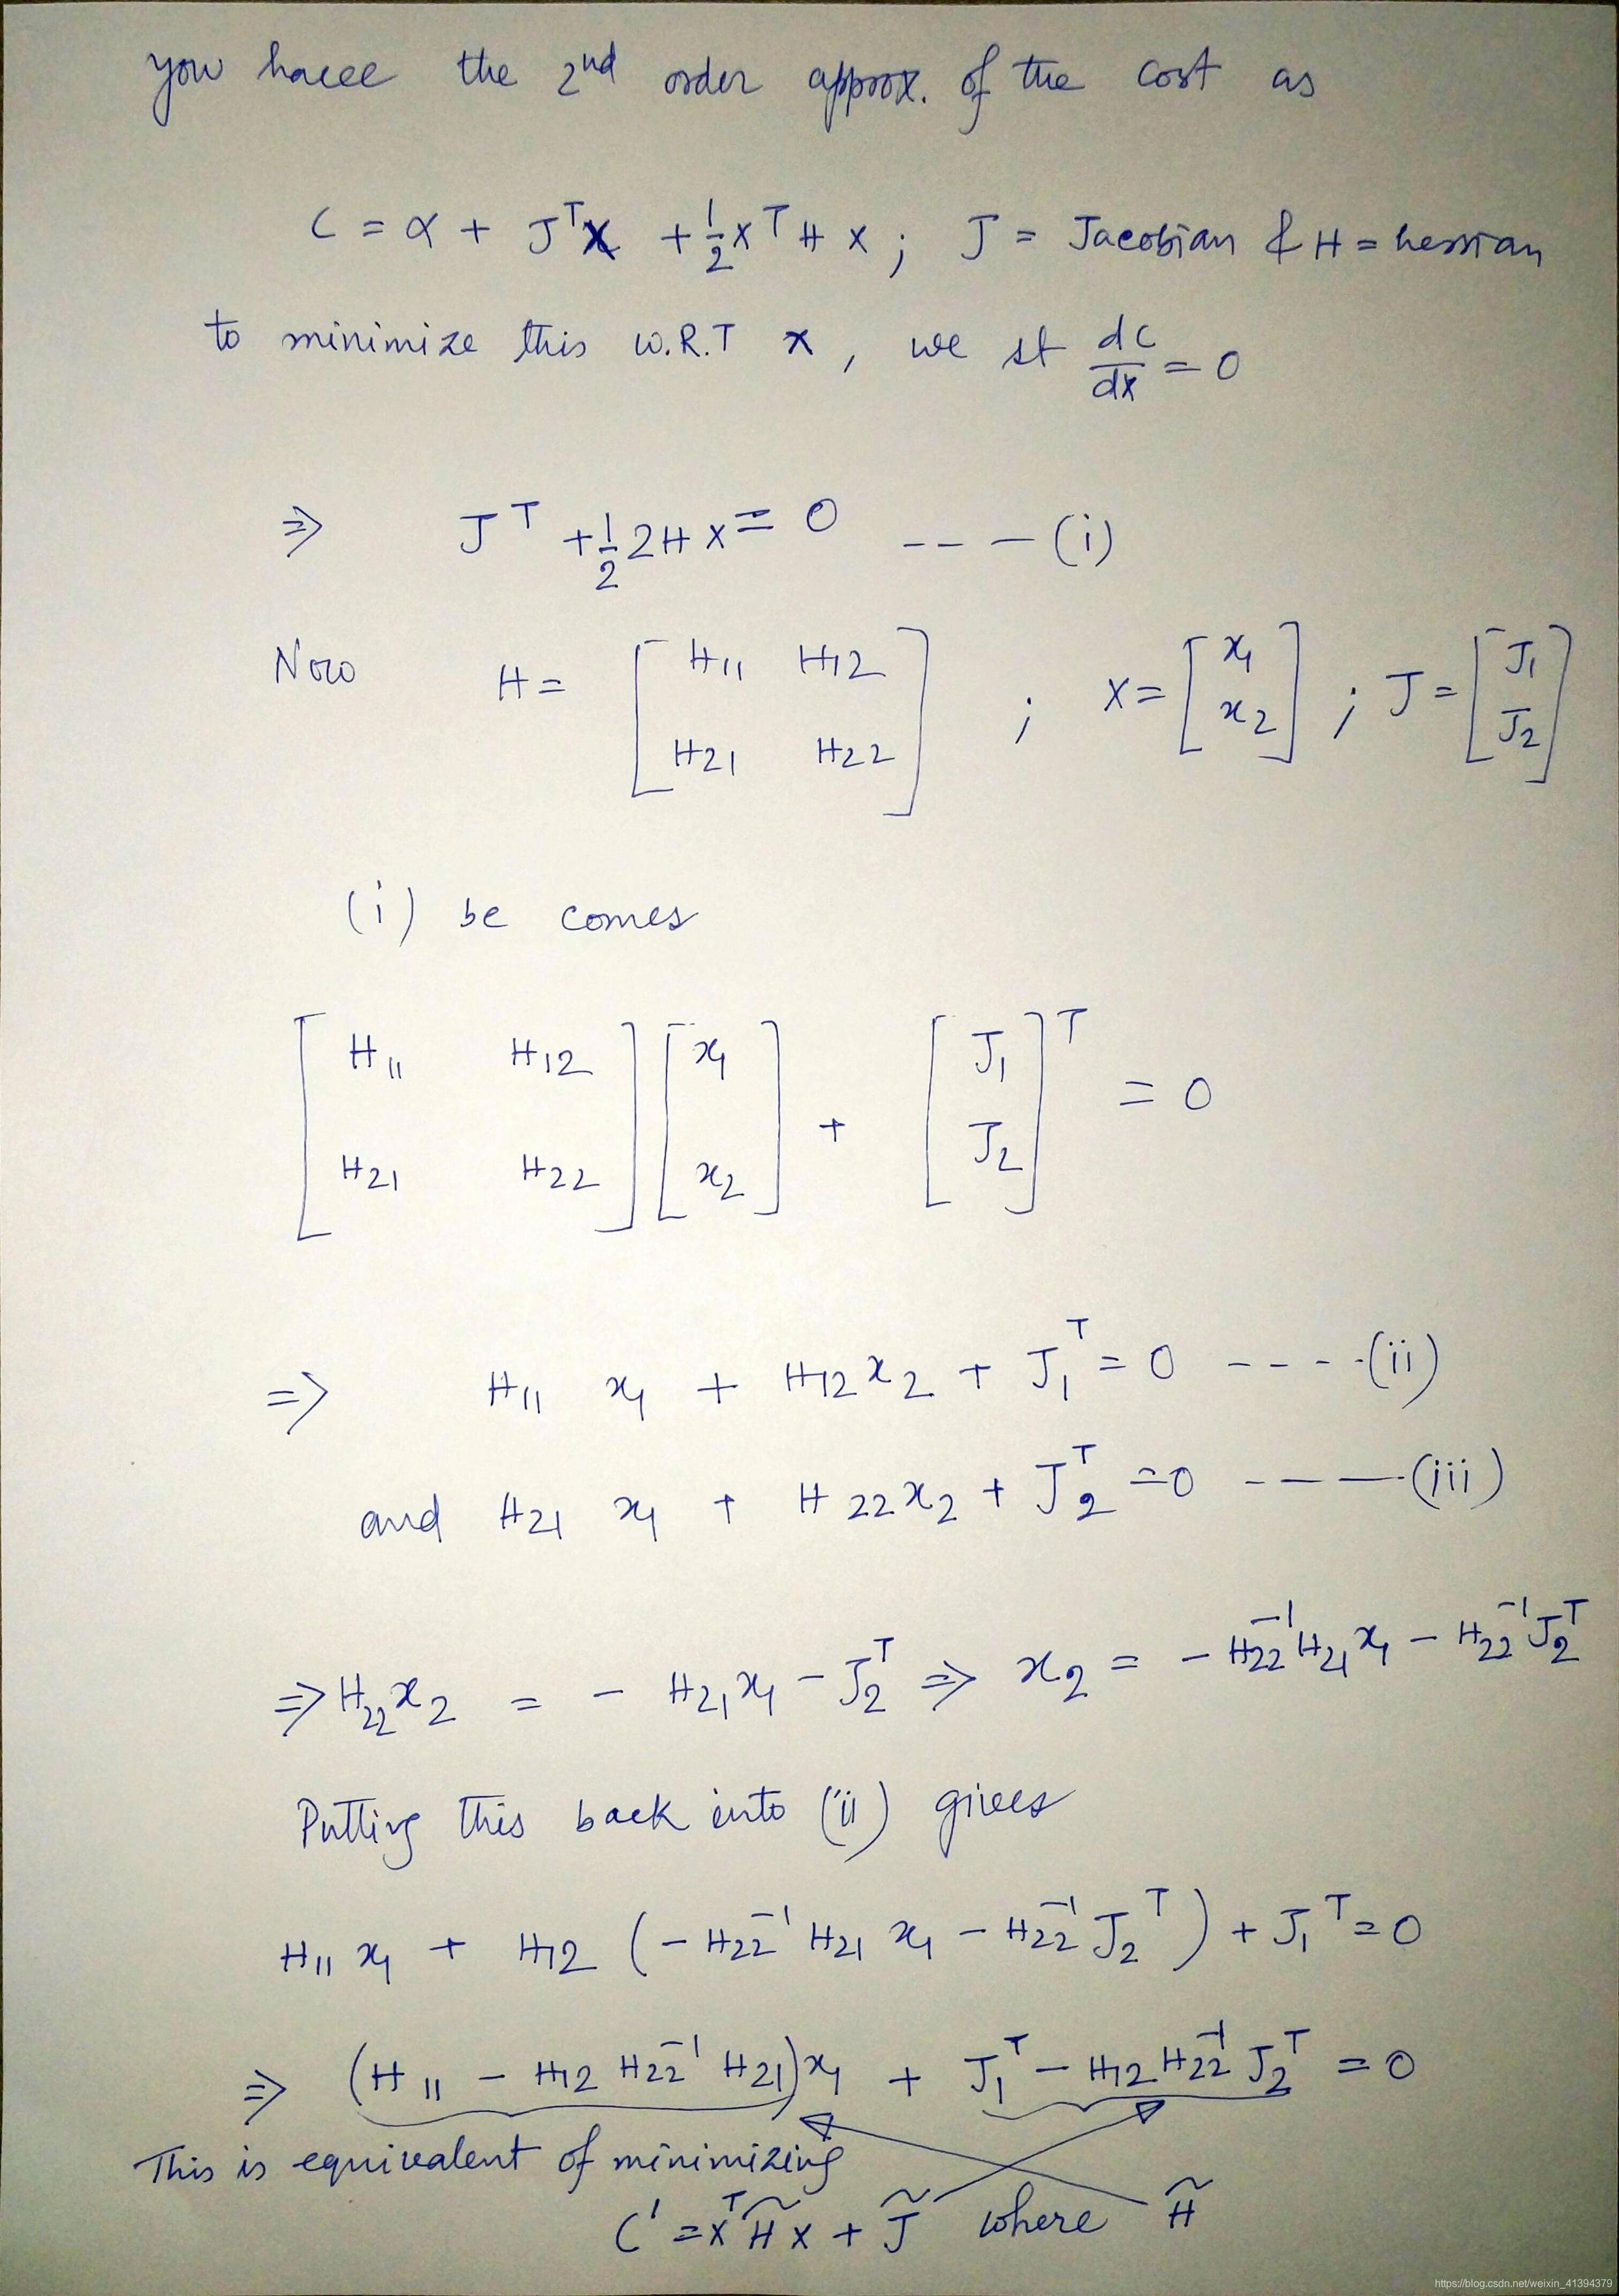 you have the 2nd order approx. of the cost as
C = α + J^T X + 1/2 X^T H X ; J = Jacobian & H = hessian
to minimize this W.R.T x , we st dC/dx = 0
⇒ J^T + 1/2 2 H X = 0 --- (i)
Now H = [ H11 H12 ; H21 H22 ] ; X = [ x1 ; x2 ] ; J = [ J1 ; J2 ]
(i) be comes
[ H11 H12 ; H21 H22 ] [ x1 ; x2 ] + [ J1 ; J2 ]^T = 0
⇒ H11 x1 + H12 x2 + J1^T = 0 ---- (ii)
and H21 x1 + H22 x2 + J2^T = 0 --- (iii)
⇒ H22 x2 = - H21 x1 - J2^T ⇒ x2 = - H22^-1 H21 x1 - H22^-1 J2^T
Putting this back into (ii) gives
H11 x1 + H12 ( - H22^-1 H21 x1 - H22^-1 J2^T ) + J1^T = 0
⇒ (H11 - H12 H22^-1 H21) x1 + J1^T - H12 H22^-1 J2^T = 0
This is equivalent of minimizing
C' = X^T H̃ X + J̃ where H̃
https://blog.csdn.net/weixin_41394379